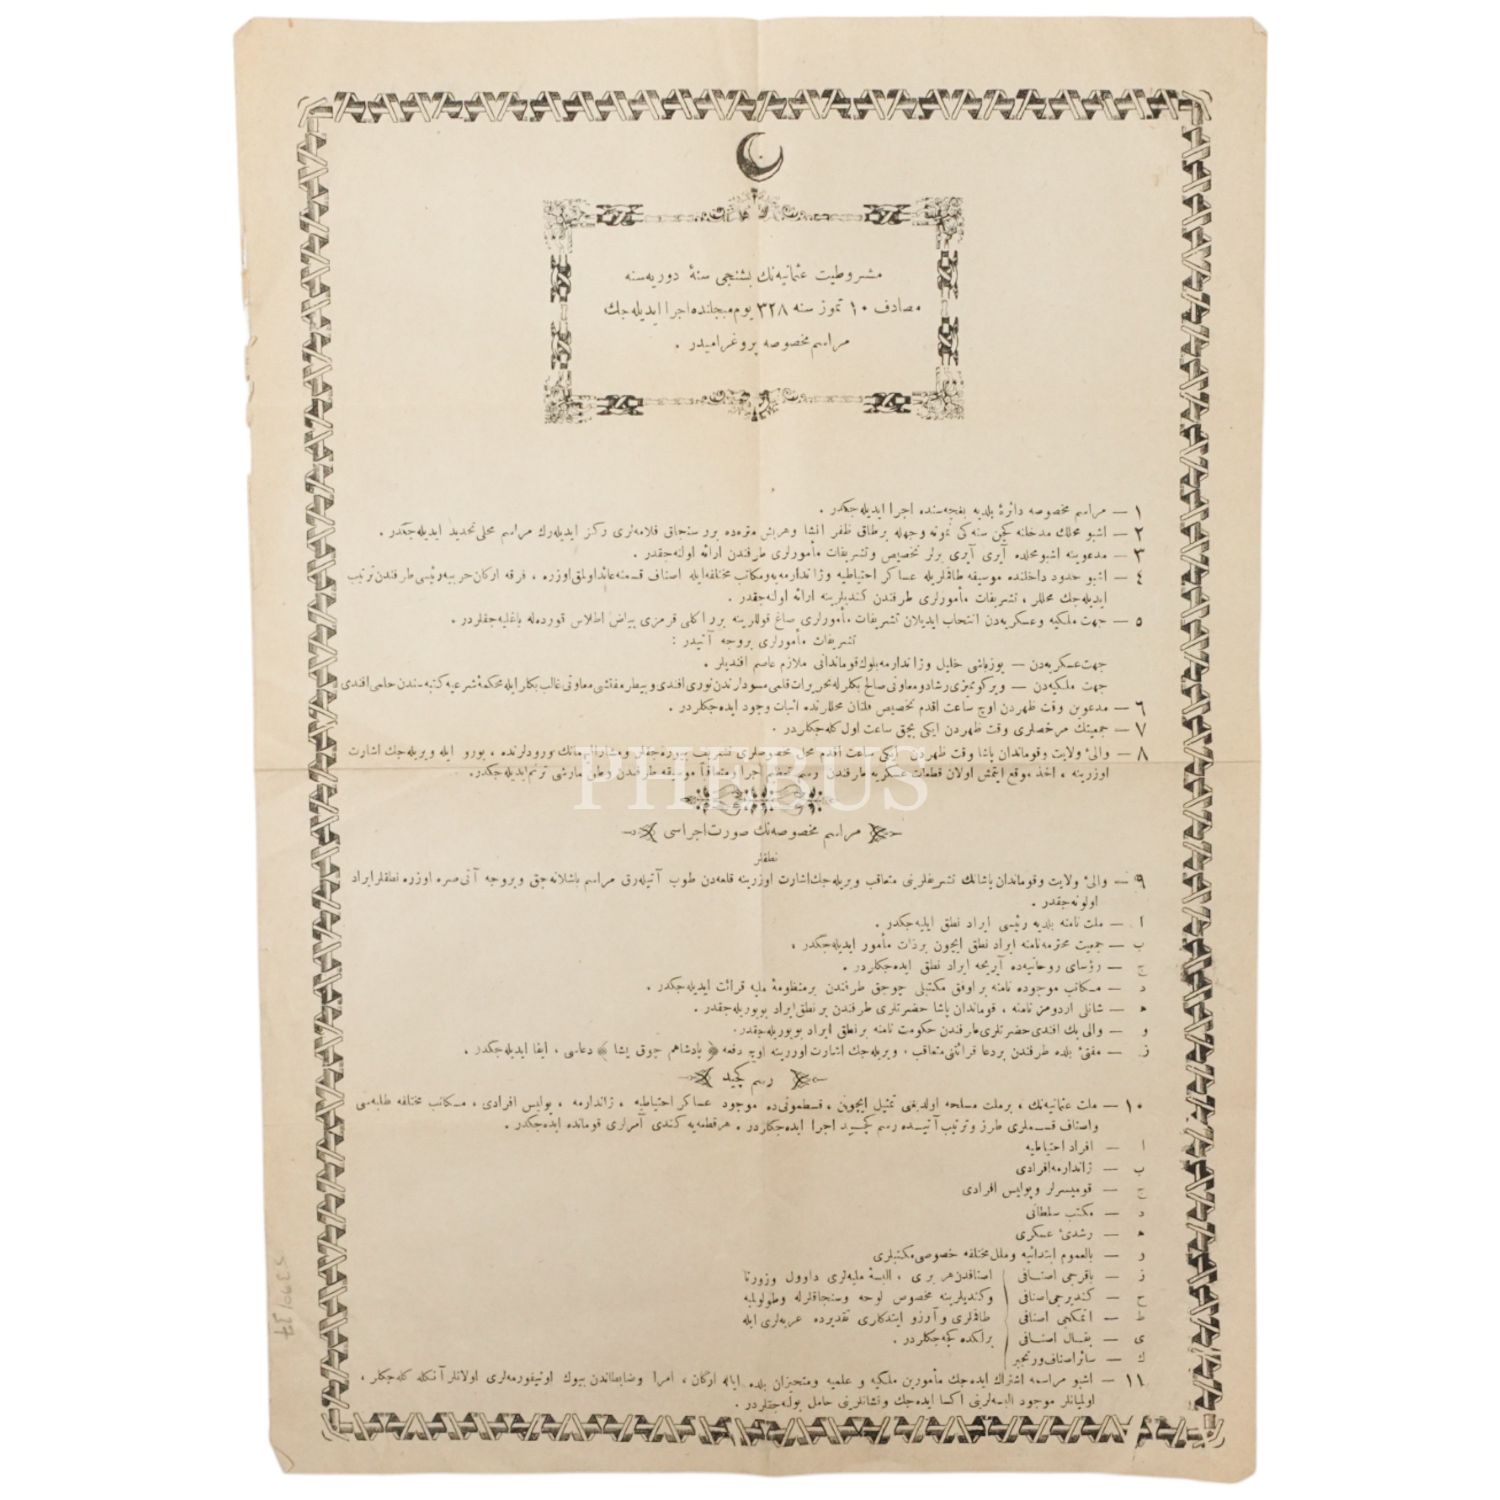 مشروطيت عثمانيه‌نك بشنجى سنهٔ دوريه‌سنه
مصادف ١٠ تموز سنه ٣٢٨ يوم مبجلنده اجرا ايديله‌جك
مراسم مخصوصه پروغراميدر .
١ — مراسم مخصوصه دائرهٔ بلديه بغچه‌سنده اجرا ايديله‌جكدر .
٢ — اشبو محلك مدخلنه كچن سنه‌كى نمونه وجهله بر طاق ظفر انشا وهر بش متره‌ده برر سنجاق فلامه‌لرى ركز ايديله‌رك مراسم محلى تحديد ايديله‌جكدر .
٣ — مدعوينه اشبو محلده آيرى آيرى يرلر تخصيص وتشريفات مأمورلرى طرفندن ارائه اولنه‌جقدر .
٤ — اشبو حدود داخلنده موسيقه طاقملريله عساكر احتياطيه وژاندارمه‌يه ومكاتب مختلفه‌ايله اصناف قسمنه عائد اولمق اوزره ، فرقه اركان حربيه رئيسى طرفندن ترتيب
ايديله‌جك محللر ، تشريفات مأمورلرى طرفندن كنديلرينه ارائه اولنه‌جقدر .
٥ — جهت ملكيه وعسكريه‌دن انتخاب ايديلان تشريفات مأمورلرى صاغ قوللرينه برر اكلى قرمزى بياض اطلاس قورده‌له باغليه‌جقلردر .
تشريفات مأمورلرى بروجه آتيدر :
جهت عسكريه‌دن — يوزباشى خليل وژاندارمه بلوك قوماندانى ملازم عاصم افنديلر .
جهت ملكيه‌دن — ويركو مميزى رشاد ومعاونى صالح بكلرله تحريرات قلمى مسودلرندن نورى افندى وبيطار مفتشى معاونى غالب بكلر ايله محكمهٔ شرعيه كتبه‌سندن حلمى افندى
٦ — مدعوين وقت ظهردن اوچ ساعت اقدم تخصيص قلنان محللرنده اثبات وجود ايده‌جكلردر .
٧ — جمعيتك مرخصلرى وقت ظهردن ايكى بچق ساعت اول كله‌جكلردر .
٨ — والئ ولايت وقوماندان پاشا وقت ظهردن ايكى ساعت اقدم محل مخصوصلرى تشريف بيوره‌جقلر ومشاراليهمانك ورودلرنده ، بورو ايله ويريله‌جك اشارت
اوزرينه ، اخذ موقع ايتمش اولان قطعات عسكريه طرفندن رسم تعظيم اجرا ومتعاقباً موسيقه طرفندن وطن مارشى ترنم ايديله‌جكدر .
PHEBUS
مراسم مخصوصه‌نك صورت اجراسى
نطقلر
٩ — والئ ولايت وقوماندان پاشانك تشريفلرينى متعاقب ويريله‌جك اشارت اوزرينه قلعه‌دن طوب آتيله‌رق مراسم باشلانه‌جق وبروجه آتى صره اوزره نطقلر ايراد
اولونه‌جقدر .
ا — ملت نامنه بلديه رئيسى ايراد نطق ايليه‌جكدر .
ب — جمعيت محترمه نامنه ايراد نطق ايچون بر ذات مأمور ايديله‌جكدر .
ج — رؤساى روحانيه‌ده آيريجه ايراد نطق ايده‌جكلردر .
د — مكاتب موجوده نامنه بر اوفق مكتبلى چوجق طرفندن بر منظومهٔ مليه قرائت ايديله‌جكدر .
ه — شانلى اردومز نامنه ، قوماندان پاشا حضرتلرى طرفندن بر نطق ايراد بويوريله‌جقدر .
و — والى بك افندى حضرتلرى طرفندن حكومت نامنه بر نطق ايراد بويوريله‌جقدر .
ز — مفتئ بلده طرفندن بر دعا قرائتنى متعاقب ، ويريله‌جك اشارت اوزرينه اوچ دفعه ﴿ پادشاهم چوق يشا ﴾ دعاسى ، ايفا ايديله‌جكدر .
رسم كچيد
١٠ — ملت عثمانيه‌نك ، بر ملت مسلحه اولديغنى تمثيل ايچون ، قسطمونى‌ده موجود عساكر احتياطيه ، ژاندارمه ، پوليس افرادى ، مكاتب مختلفه طلبه‌سى
واصناف قسملرى طرز وترتيب آتيده رسم كچيد اجرا ايده‌جكلردر . هر قطعه‌يه كندى آمرلرى قومانده ايده‌جكدر .
ا — افراد احتياطيه
ب — ژاندارمه افرادى
ج — قوميسرلر وپوليس افرادى
د — مكتب سلطانى
ه — رشدئ عسكرى
و — بالعموم ابتدائيه وملل مختلفه خصوصى مكتبلرى
ز — باقرجى اصنافى
ح — كنديرجى اصنافى
ط — اتمكجى اصنافى
ى — بقال اصنافى
ك — سائر اصناف ورنجبر
اصنافدن هر برى ، البسهٔ مليه‌لرى داوول وزورنا
وكنديلرينه مخصوص لوحه وسنجاقلرله وطولومبه
طاقملرى وآرزو ايتدكارى تقديرده عربه‌لرى ايله
برلكده كچه‌جكلردر .
١١ — اشبو مراسمه اشتراك ايده‌جك مأمورين ملكيه و علميه ومتحيزان بلده ايله اركان ، امرا وضابطاندن بيوك اونيفورمه‌لرى اولانلر آنكله كله‌جكلر ،
اولميانلر موجود البسه‌لرينى اكسا ايده‌جك ونشانلرينى حامل بوله‌جقلردر .